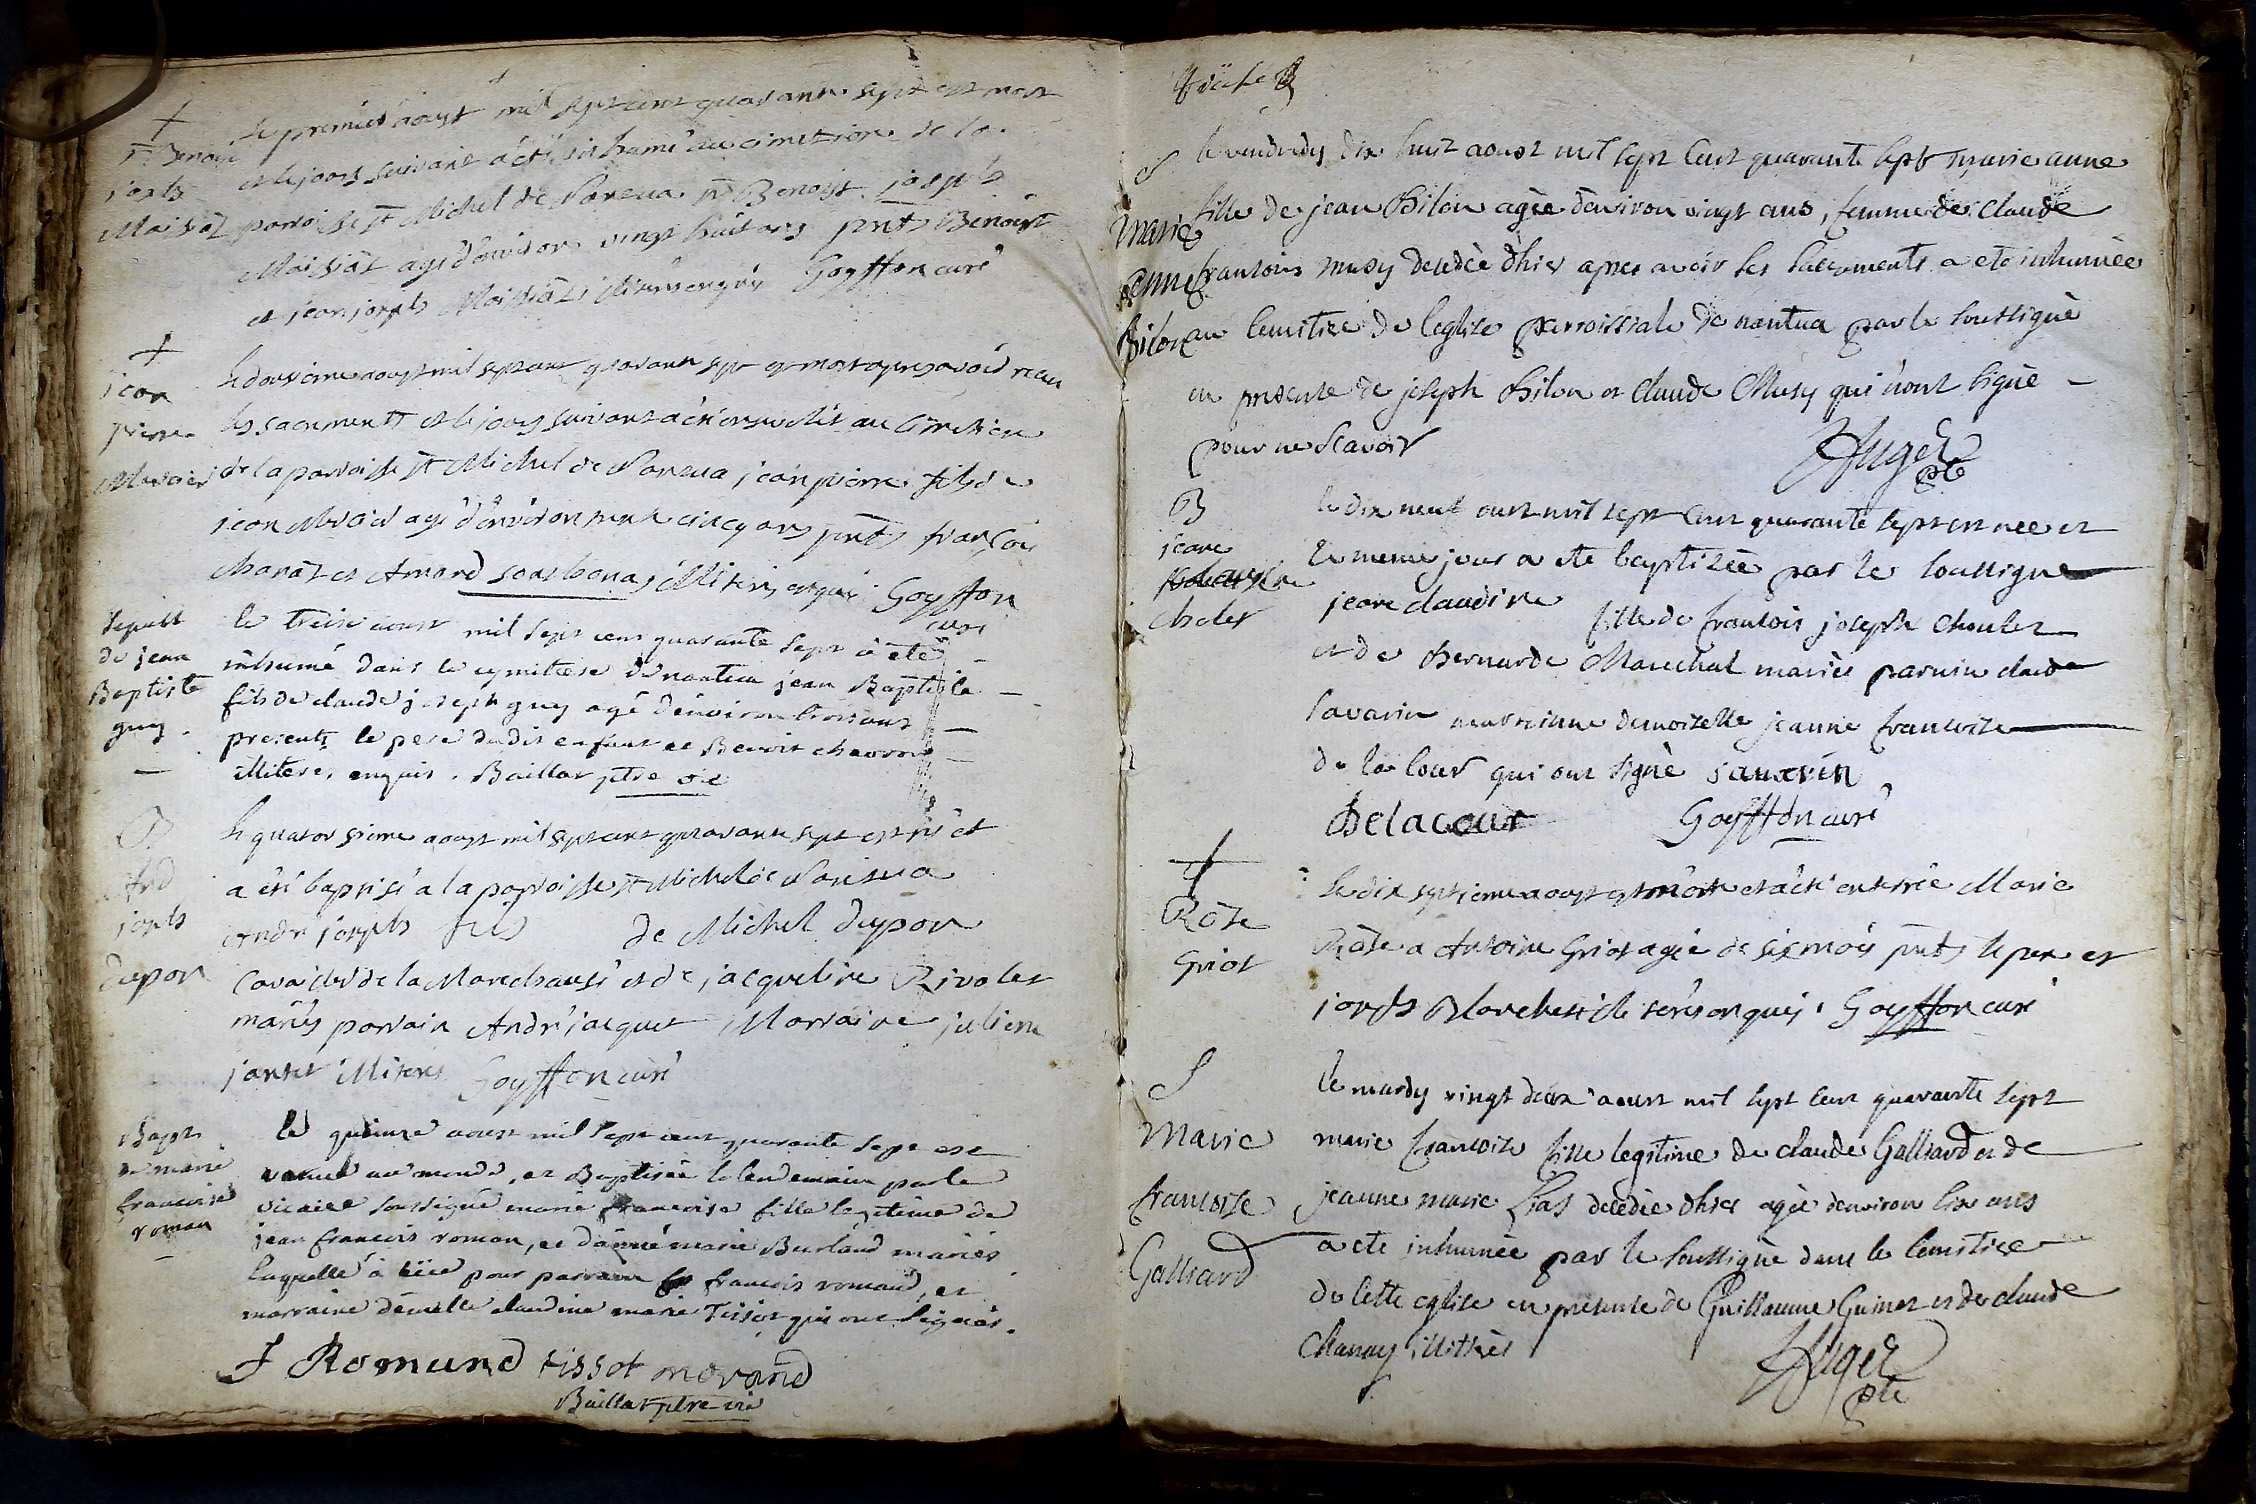 le premier aoust mil sept cent quarante sept est mort
et le jours suivant a été inhumé au cimetiere de la
paroisse st Michel de Nantua Benoist joseph
Moissiat agé d'environ vingt huit ans pnts Benoist
et jean joseph Moissiat illiterés enquis Goyffon curé
Benoist
joseph
Moissiat
le dousieme aoust mil sept cent quarante sept est mort apres avoir recu
les sacrements et le jours suivant a été enseveli au cimetiere
de la paroisse st Michel de Nantua jean pierre fils de
jean Mercier agé d'environ cinq ans pnts françois
et Amard illiterés enquis Goyffon
curé
jean
pierre
Mercier
le treise aoust mil sept cens quarante sept a eté
inhumé dans le cymittere de nantua jean Baptiste
fils de claude joseph guy agé d'environ trois ans
presents le pere dudit enfant et Benoit
illiteres enquis. Baillat ptre vic
sepult
de jean
Baptiste
guy
le quatorsieme aoust mil sept cent quarante sept est né et
a été baptisé a la paroisse st Michel de Nantua
André joseph fils de Michel dupon
Cavalier de la Marechaussé et de jacqueline Rivolet
mariés parrain André jacquet Marraine julienne
jantet illiterés Goyffon curé
B
And
joseph
dupon
le quinze aoust mil sept cent quarante sept est
venue au monde, et Baptisée le lendemain par le
vicaire soussigné marie françoise fille legitime de
jean francois roman, et d'anne marie Burland mariés
laquelle a eüe pour parrain francois romand, et
marraine demelle claudine marie Tissot qui ont signés.
Bapt
de marie
francoise
roman
J Romand tissot morand
Baillat ptre vic
le vendredy dix huit aoust mil sept cent quarante sept marie anne
fille de jean Bilon agèe denviron vingt ans, femme de Claude
francois musy decedèe dhier apres avoir les sacrements a ete inhumèe
au cemitire de leglise parroissiale de nantua par le soussignè
en presence de joseph Bilon et Claude Musy qui n'ont signè
pour ne scavoir
Auger
ptre
S
Marie
anne
Bilon
le dix neuf aout mil sept cent quarante sept est nee et
le meme jour a ete baptisèe par le soussigne
jeane claudine fille de francois joseph choulet
et de Bernarde Marechal mariès parrin claude
savarin marrainne demoiselle jeanne francoise
de la cour qui ont signè savarin
Delacour Goyffon curé
B
jeane
cholet
le dix septieme aoust est morte et a été enterrée Marie
Rose a Antoine Griot agée de six mois pnts le pere et
joseph illiterés enquis. Goyffon curé
Rose
Griot
le mardy vingt deux aoust mil sept cent quarante sept
marie francoise fille legitime de claude Galliard et de
jeanne marie decedèe dhier agèe denviron six ans
a ete inhumèe par le soussignè dans le cemitire
de cette eglise en presence de Guillaume Guinet et de claude
Chanay illitrès
Auger
ptre
S
Marie
francoise
Galliard